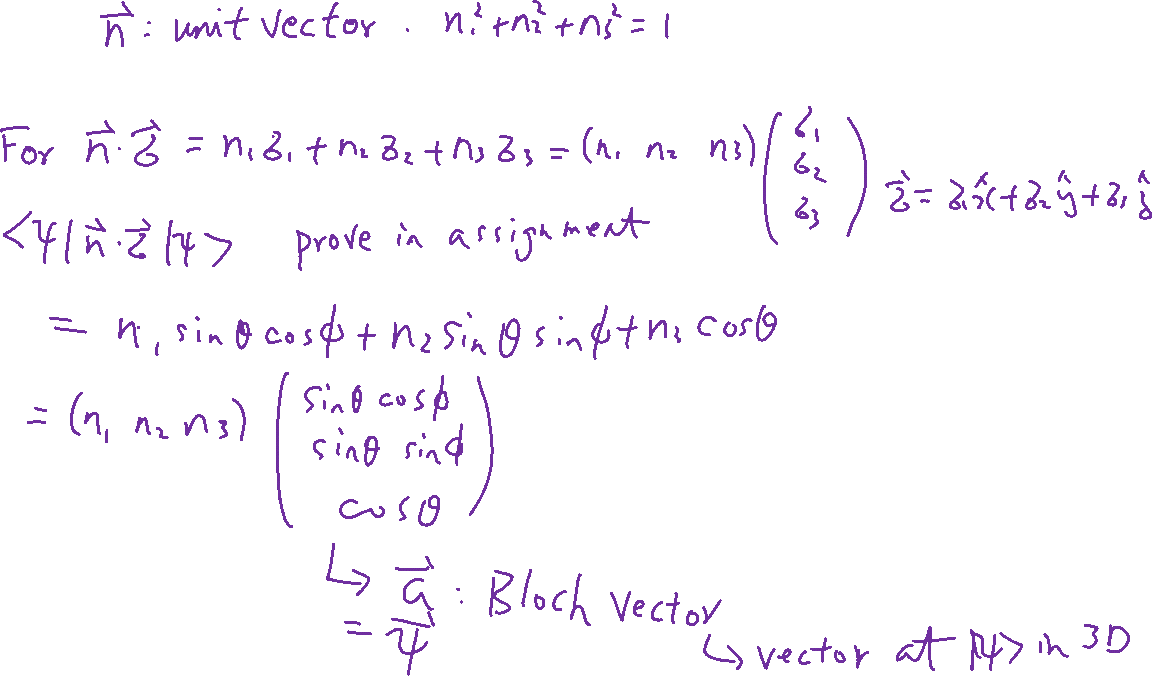 n⃗ : unit vector . n₁² + n₂² + n₃² = 1
For n⃗ · σ⃗ = n₁σ₁ + n₂σ₂ + n₃σ₃ = (n₁ n₂ n₃) (σ₁ σ₂ σ₃) σ⃗ = σ₁x̂ + σ₂ŷ + σ₁ẑ
<ψ|n⃗ · σ⃗|ψ> prove in assignment
= n₁ sinθ cosϕ + n₂ sinθ sinϕ + n₃ cosθ
= (n₁ n₂ n₃) (sinθ cosϕ
sinθ sinϕ
cosθ)
↳ a⃗ : Bloch vector
= ψ⃗
↳ vector at |ψ> in 3D